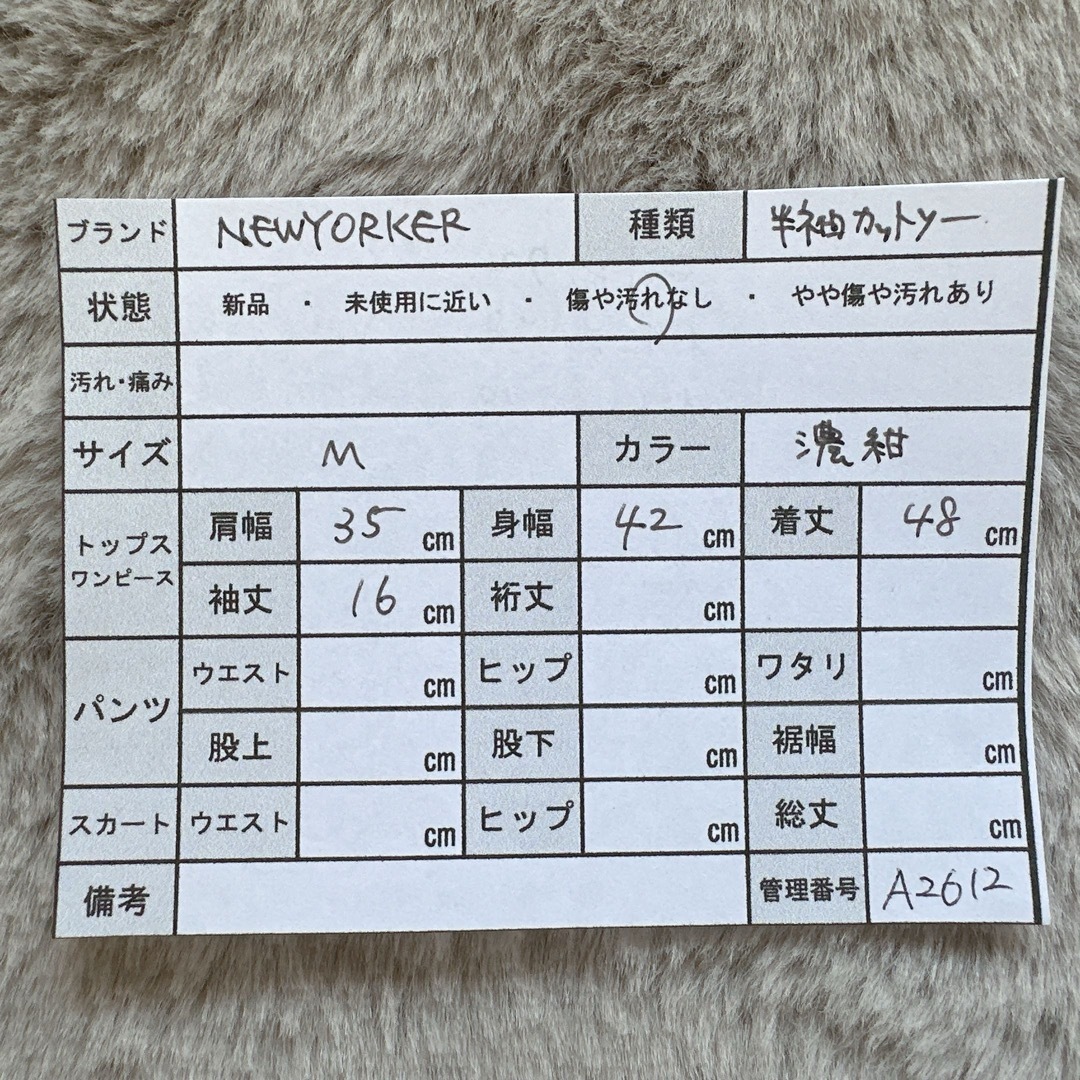 ブランド NEWYORKER 種類 半袖カットソー
状態 新品 ・ 未使用に近い ・ 傷や汚れなし ・ やや傷や汚れあり
汚れ・痛み
サイズ M カラー 濃紺
トップス ワンピース 肩幅 35 cm 身幅 42 cm 着丈 48 cm
袖丈 16 cm 裄丈 cm
パンツ ウエスト cm ヒップ cm ワタリ cm
股上 cm 股下 cm 裾幅 cm
スカート ウエスト cm ヒップ cm 総丈 cm
備考 管理番号 A2612